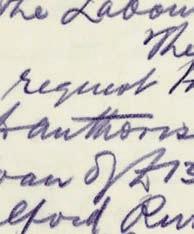 the Labou
The
request th
authoris
oan of £13
lford Riv